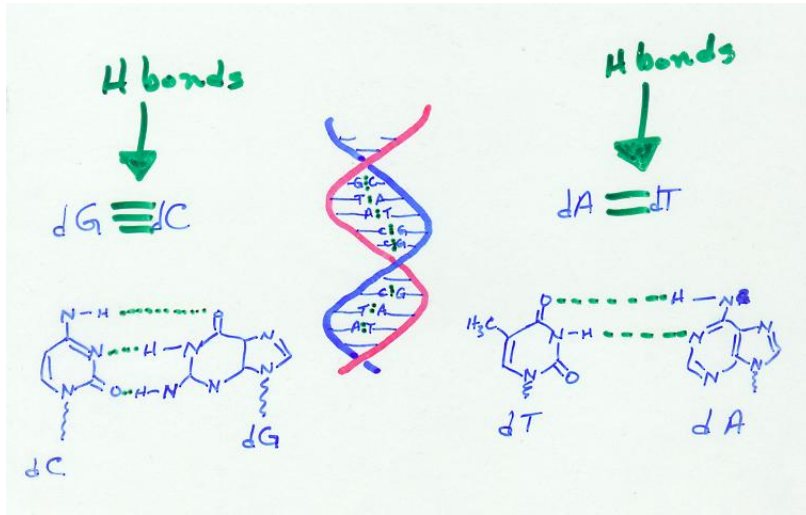 H bonds
dG≡dC
N-H
O
N
H-N
N
N
N
O
H-N
N
N
dC
dG
G:C
T:A
A:T
C:G
C:G
C:G
T:A
A:T
H bonds
dA=dT
O
H-N
H₃C
N-H
N
N
N
O
N
N
N
dT
dA